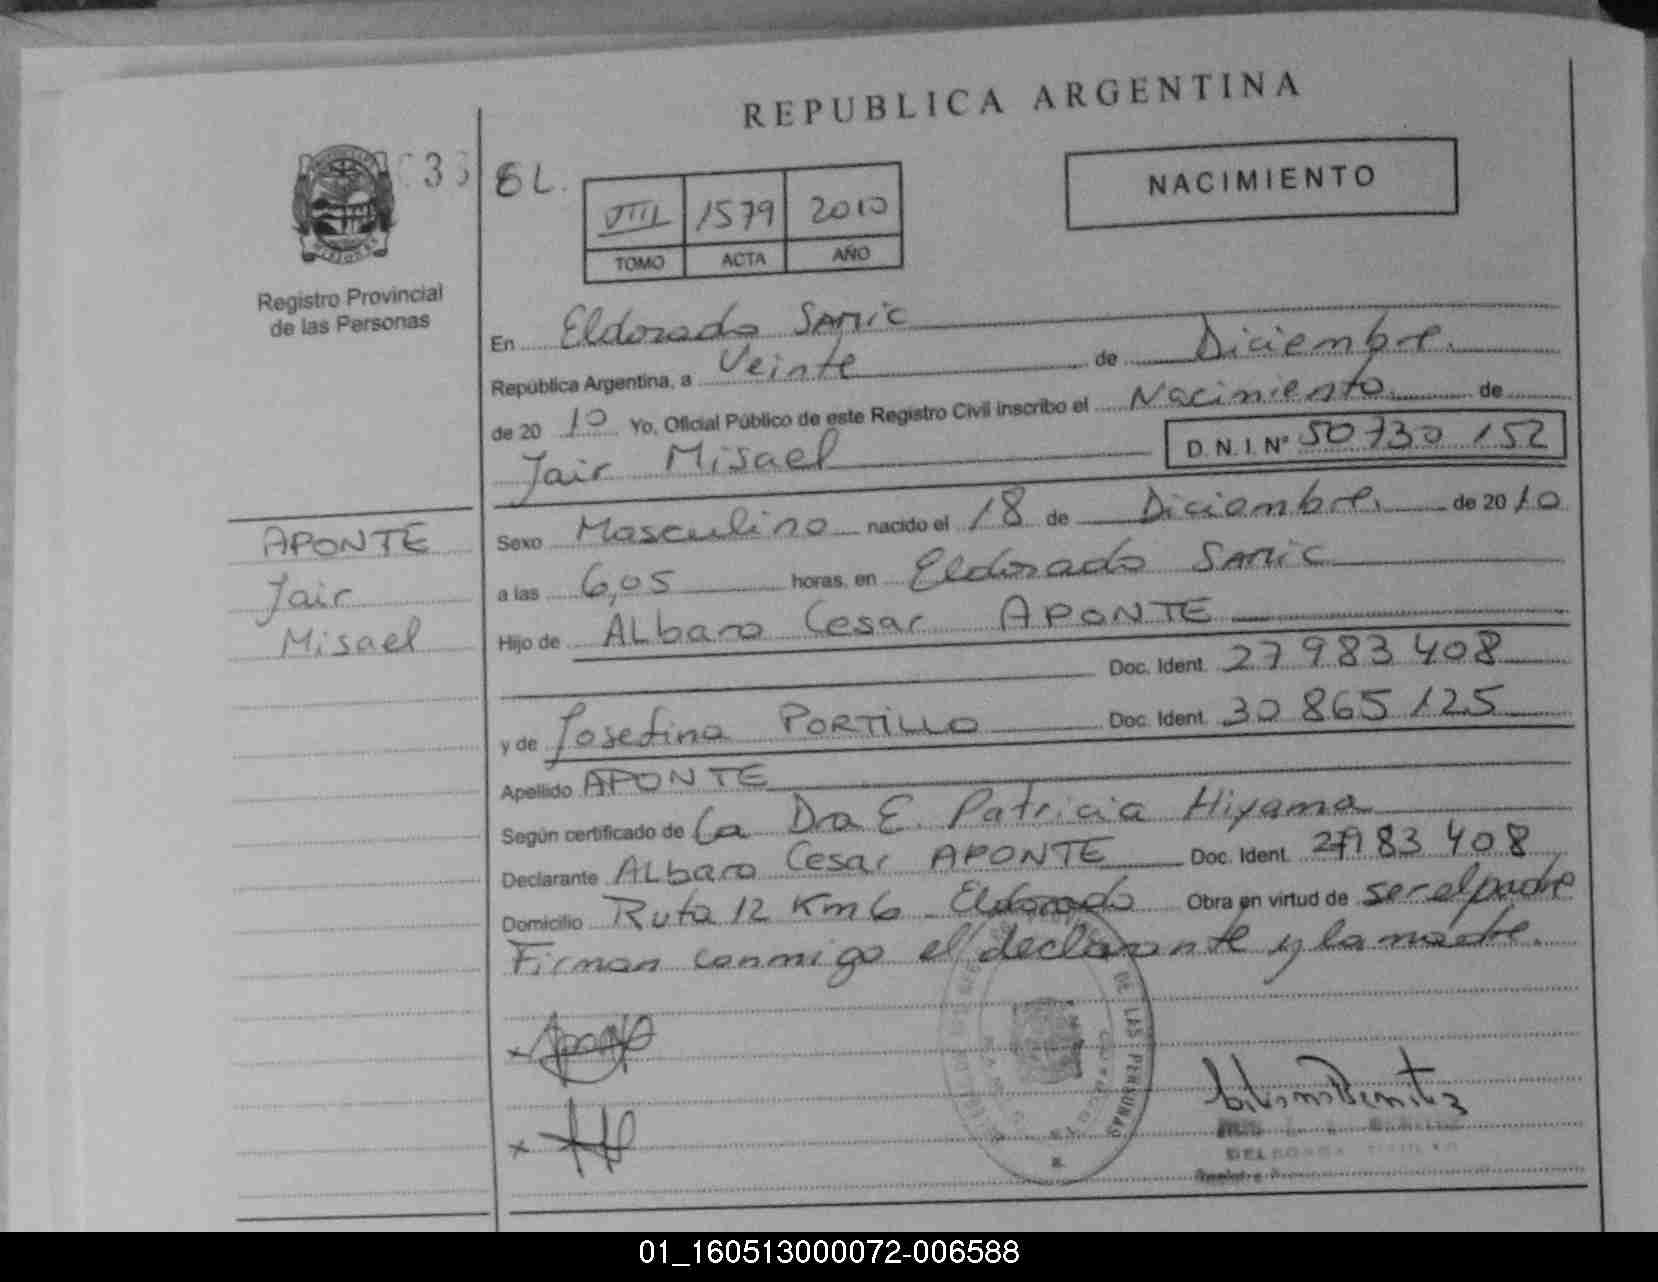 REPUBLICA ARGENTINA
33 EL.
NACIMIENTO
VIII 1579 2010
TOMO ACTA AÑO
Registro Provincial
de las Personas
En Eldorado SAMic
República Argentina, a Veinte de Diciembre.
de 20 10 Yo, Oficial Público de este Registro Civil inscribo el Nacimiento de
Jair Misael D. N. I. Nº 50 730 152
APONTE
Jair
Misael
Sexo Masculino nacido el 18 de Diciembre. de 20 10
a las 6,05 horas, en Eldorado SAMic
Hijo de ALbaro Cesar APONTE
Doc. Ident. 27 983 408
y de Josefina PORTiLLO Doc. Ident. 30 865 125
Apellido APONTE
Según certificado de La Dra E. Patricia Hiyama
Declarante ALbaro Cesar APONTE Doc. Ident. 27983 408
Domicilio Ruta 12 Km 6 Eldorado Obra en virtud de ser el padre
Firman conmigo el declarante y la madre.
DE LAS PERSONAS
01_160513000072-006588